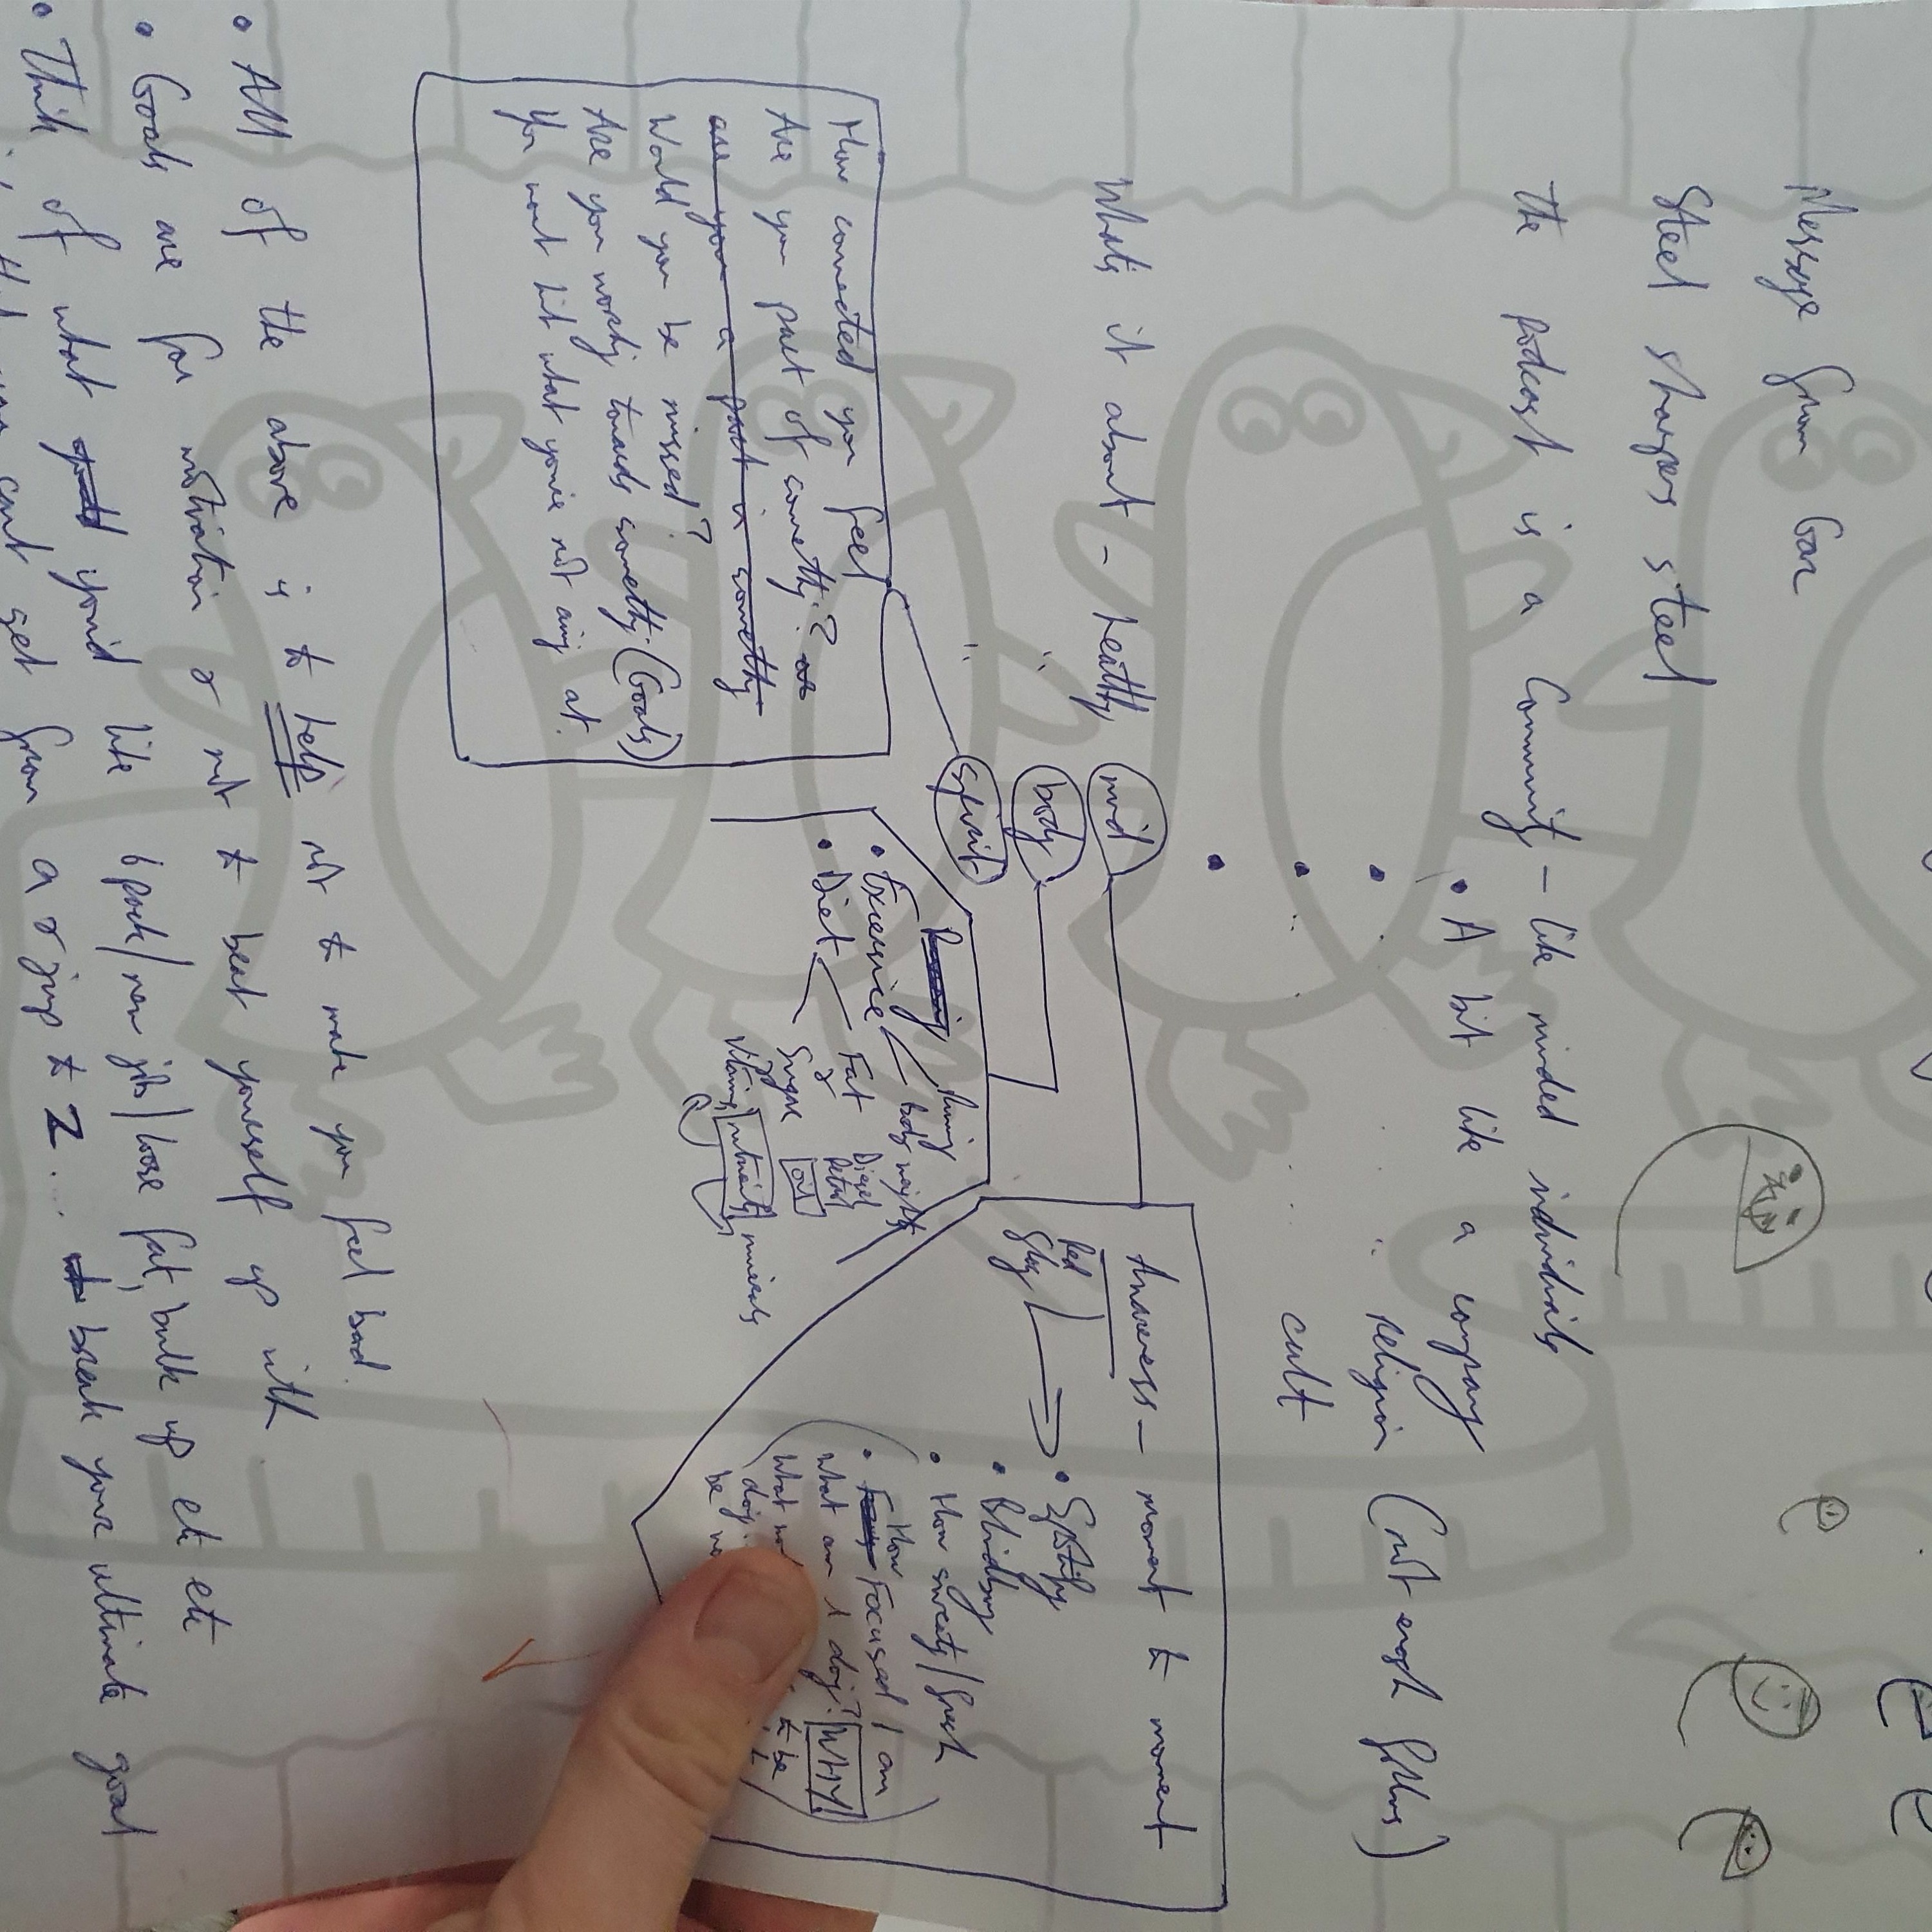 Message from Gar
Steel sharpens steel
The podcast is a community - like minded individuals
• A bit like a company
• " " religion (not enough
• .. .. cult
•
Whats it about - healthy mind
" body
" spirit
How connected you feel
Are you part of something?
are you a part in something
Would you be missed?
Are you working towards something. (Goals)
You wont hit what you're not aiming at.
Running
• Excersice
Running
body weight
• Diet
Fat
or
Sugar
Diesel
Petrol
oil
Vitamins, nutrients, minerals
Awareness - moment to moment
Red
• Spotify
•
• How sweaty/fresh
• How Focused I am
What am I doing? WHY
What
doing.
to be
be
• All of the above is to help not to make you feel bad.
• Goals are for motivation & not to beat yourself up with
• Think of what you'd like 6 pack/new job/loose fat, bulk up etc etc
cant get from a or jump to Z.... break your ultimate goal